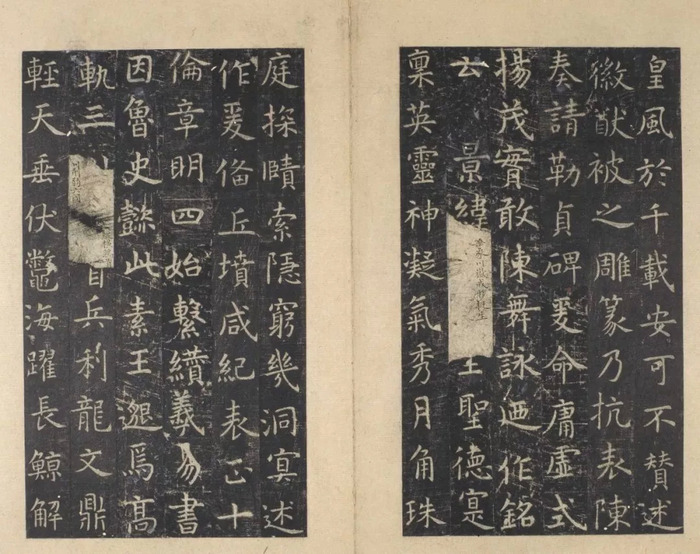 皇風於千載安可不賛述
徽猷被之雕篆乃抗表陳
奏請勒貞碑爰命庸虛式
揚茂實敢陳舞詠迺作銘
云 景緯 聖德寔
稟英靈神凝氣秀月角珠
庭探賾索隱窮幾洞冥述
作爰俻丘墳咸紀表正十
倫章明四始繫纘羲易書
因魯史懿此素王邈焉高
軌三 首兵利龍文鼎
輕天垂伏鼈海躍長鯨解